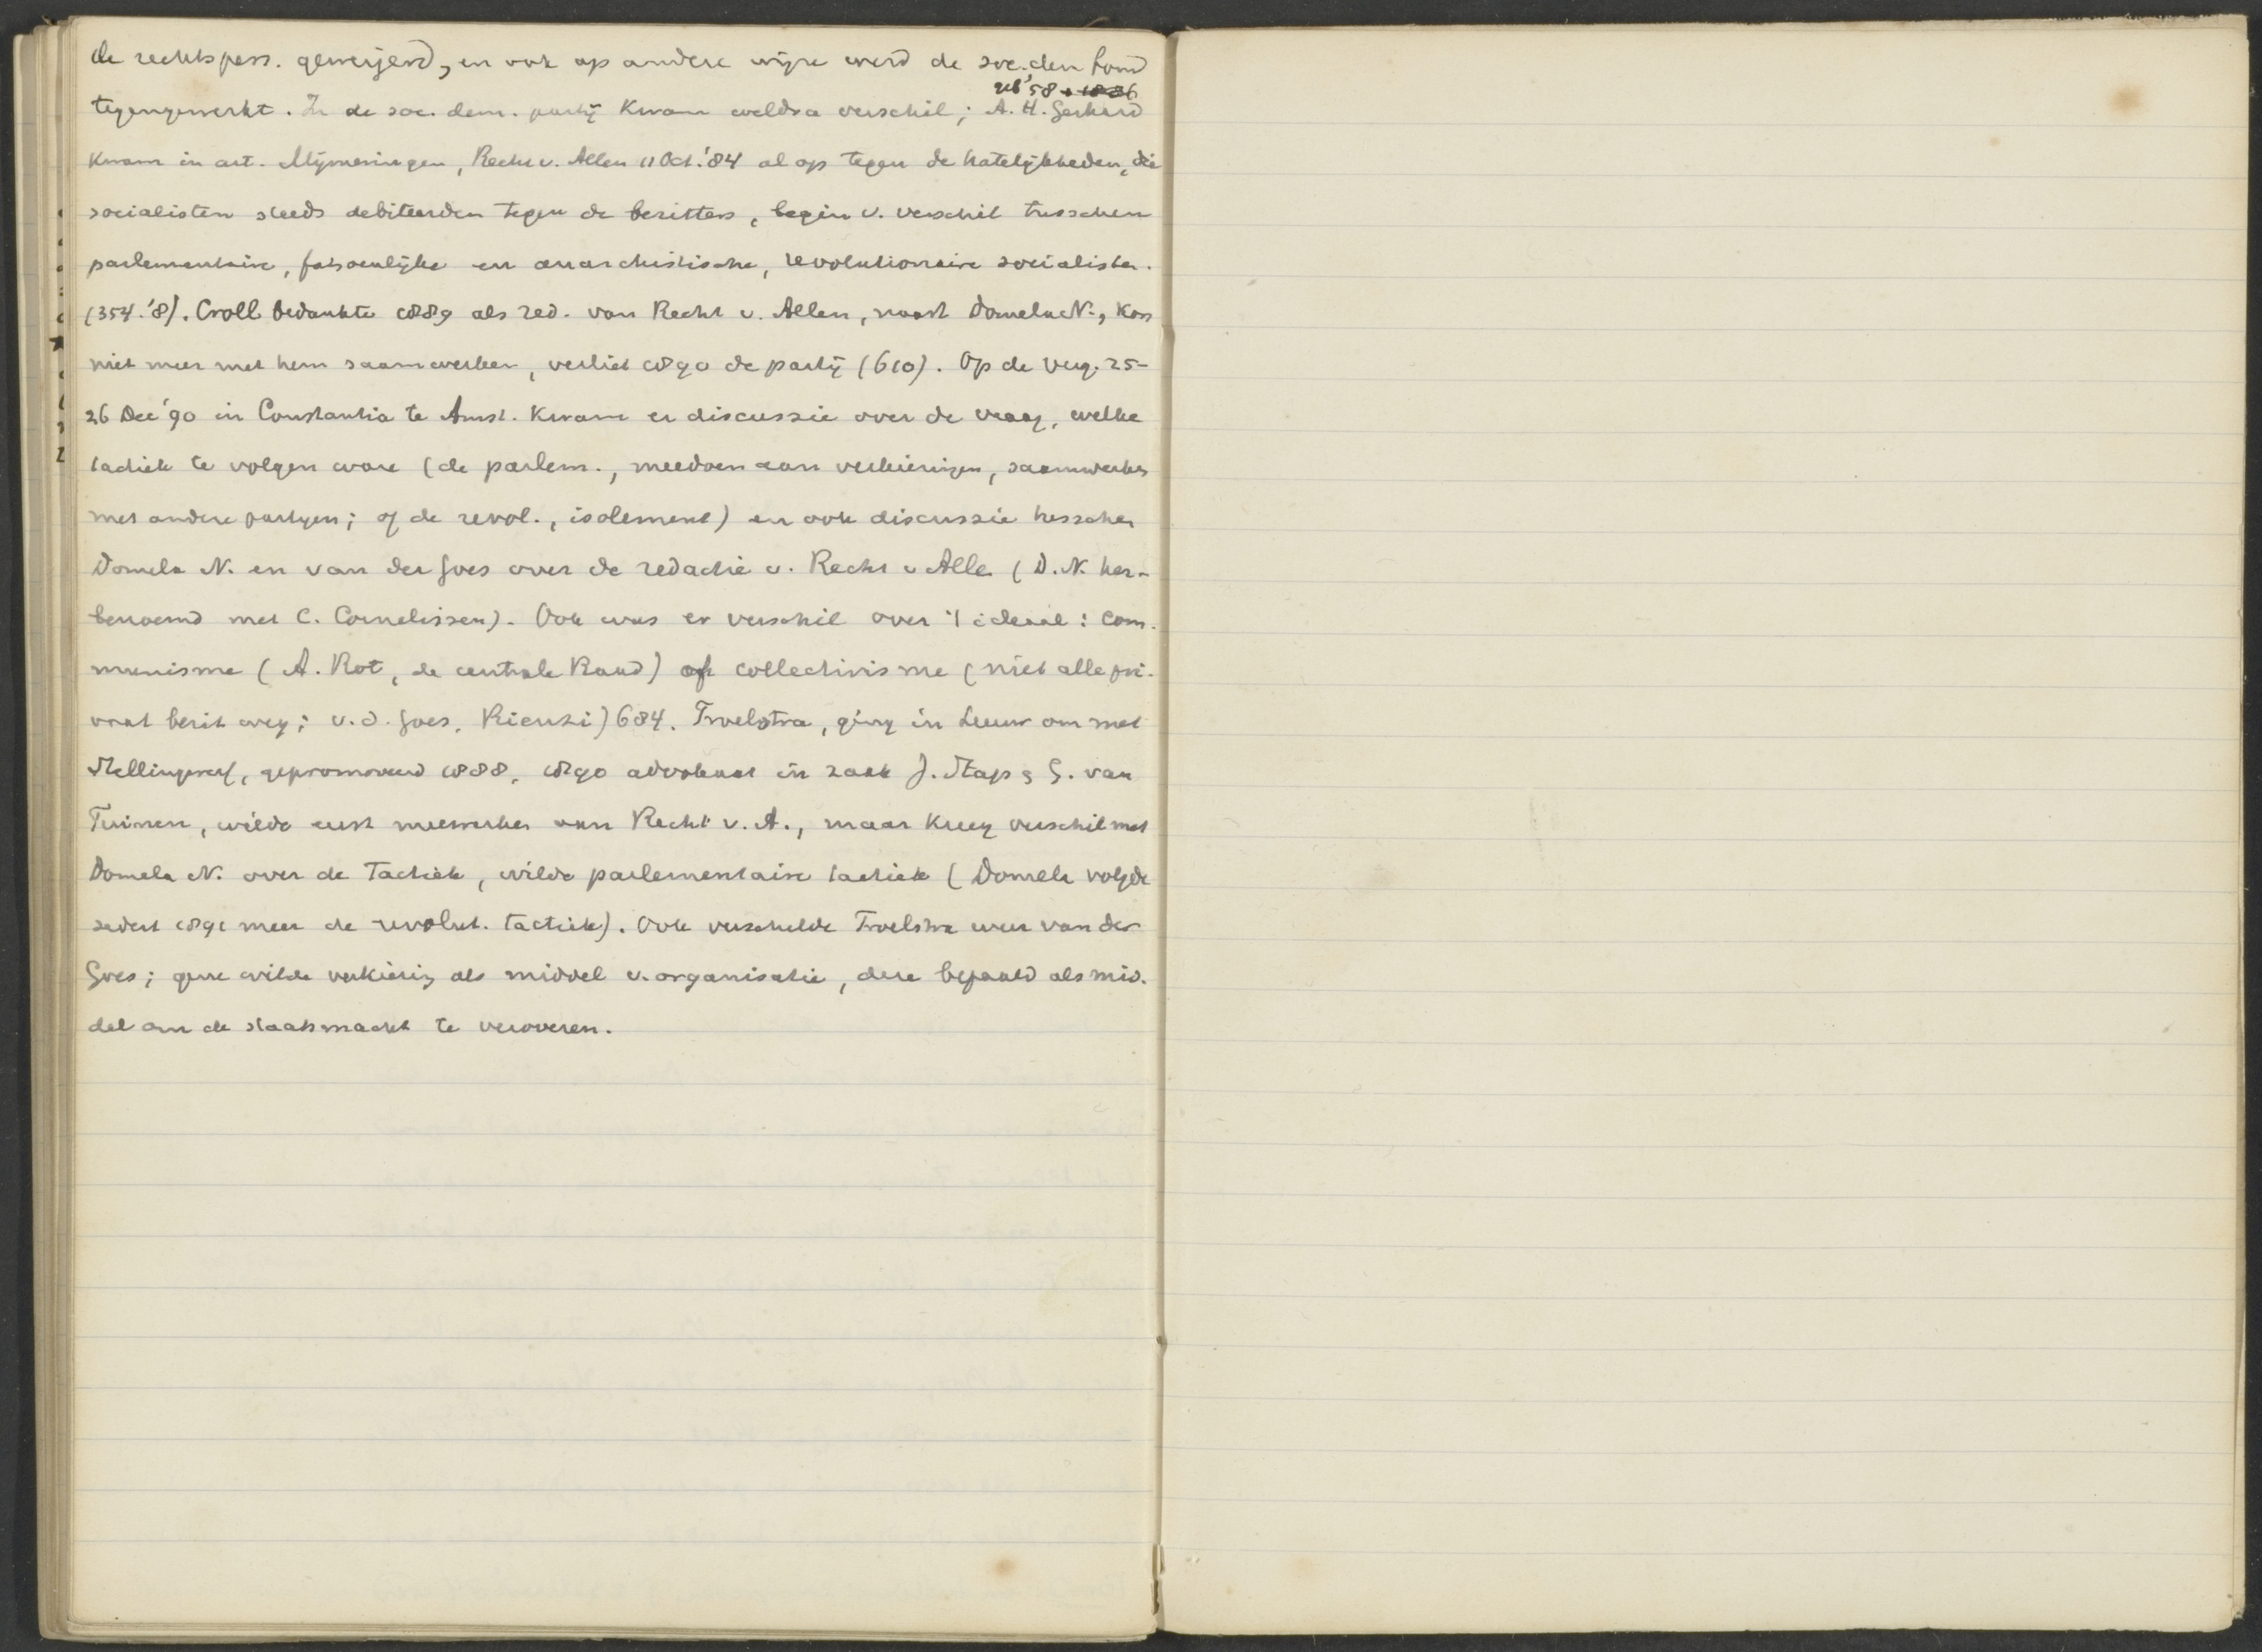 de rechtspers. geweigerd, en ook op andere wijze werd de soc. dem. bond
geb '58 + 1886
tegengewerkt. In de soc. dem. partij kwam weldra verschil; A. H. Gerhard
kwam in art. Mijmeringen, Recht v. Allen 11 Oct. '84 al op tegen de hatelijkheden, die
socialisten steeds debiteerden tegen de bezitters, begin v. verschil tusschen
parlementaire, fatsoenlijke en anarchistische, revolutionaire socialisten.
(354.'8). Croll bedankte 1889 als red. van Recht v. Allen, naast Domela N., kon
niet meer met hem saamwerken, verliet 1890 de partij (610). Op de verg. 25-
26 Dec '90 in Constantia te Amst. kwam er discussie over de vraag, welke
tactiek te volgen ware (de parlem., meedoen aan verkiezingen, saamwerken
met andere partijen; of de revol., isolement) en ook discussie tusschen
Domela N. en van der Goes over de redactie v. Recht v Allen (D. N. her-
benoemd met C. Cornelissen). Ook was er verschil over 't ideaal: com-
munisme (A. Rot, de centrale Raad) of collectivisme (niet alle pri-
vaat bezit weg; v. d. Goes, Rienzi) 684. Troelstra, ging in Leeuw om met
Stellingwerf, gepromoveerd 1888, 1890 advokaat in zaak J. Stap & G. van
Tuinen, wilde eerst meewerken aan Recht v. A., maar kreeg verschil met
Domela N. over de tactiek, wilde parlementaire tactiek (Domela volgde
sedert 1891 meer de revolut. tactiek). Ook verschilde Troelstra weer van der
Goes; gene wilde verkiezing als middel v. organisatie, deze bepaald als mid-
del om de staatsmacht te veroveren.